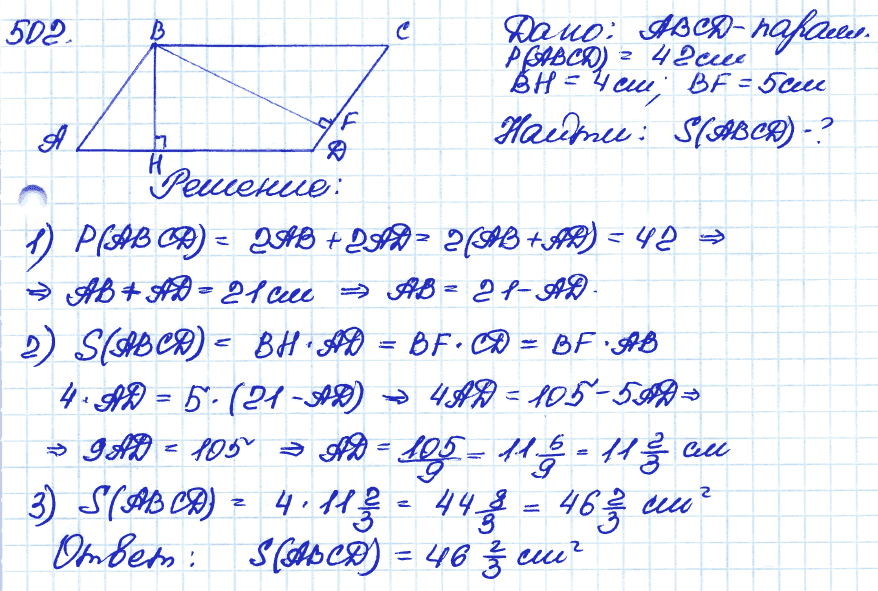 502.
B
C
A
H
F
D
Дано: ABCD - паралл.
P(ABCD) = 42 см
BH = 4 см; BF = 5 см
Найти: S(ABCD) - ?
Решение:
1) P(ABCD) = 2AB + 2AD = 2(AB + AD) = 42 ⇒
⇒ AB + AD = 21 см ⇒ AB = 21 - AD.
2) S(ABCD) = BH · AD = BF · CD = BF · AB
4 · AD = 5 · (21 - AD) ⇒ 4AD = 105 - 5AD ⇒
⇒ 9AD = 105 ⇒ AD = 105/9 = 11 6/9 = 11 2/3 см
3) S(ABCD) = 4 · 11 2/3 = 44 8/3 = 46 2/3 см²
Ответ: S(ABCD) = 46 2/3 см²